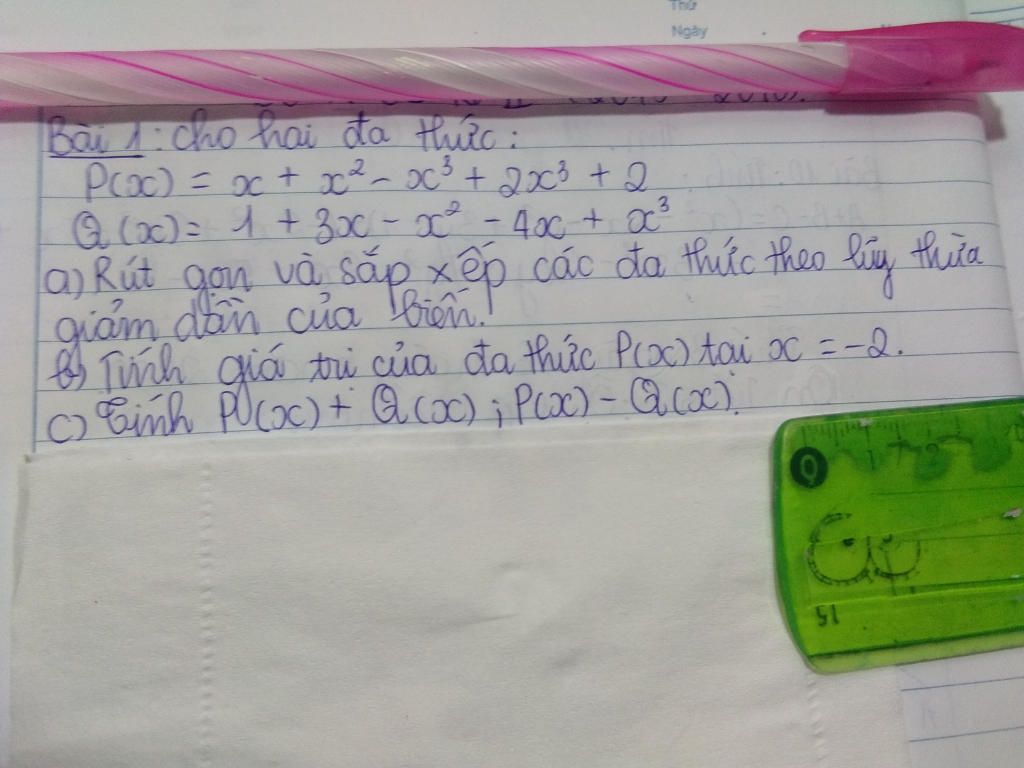 Thứ
Ngày
Bài 1: Cho hai đa thức:
P(x) = x + x² - x³ + 2x³ + 2
Q(x) = 1 + 3x - x² - 4x + x³
a) Rút gọn và sắp xếp các đa thức theo lũy thừa
giảm dần của biến.
b) Tính giá trị của đa thức P(x) tại x = -2.
c) Tính P(x) + Q(x); P(x) - Q(x).
0 1
15